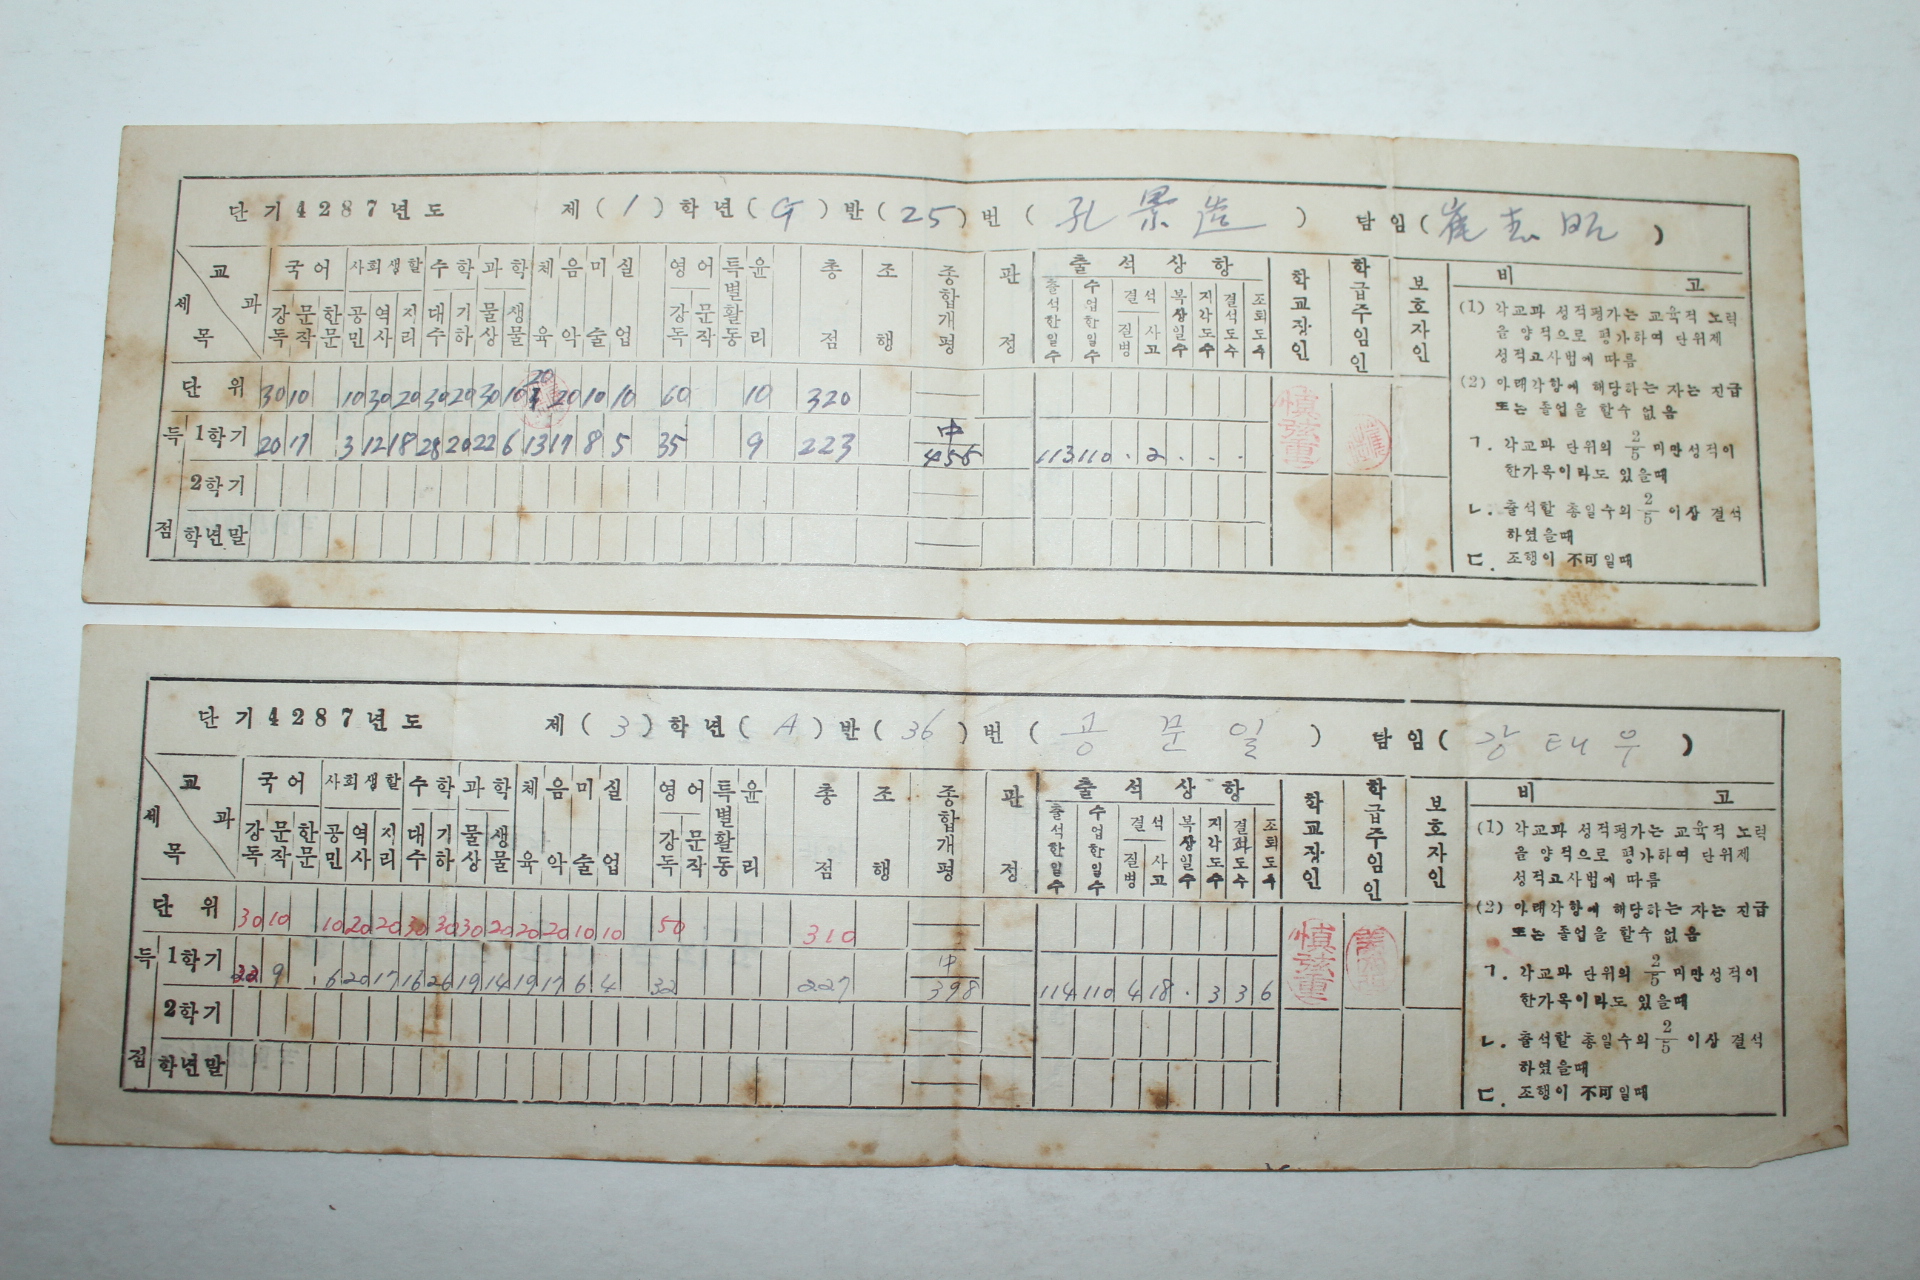 단기 4287년도 제(1)학년(G)반(25)번(孔景造) 담임(崔志旼)
교과 국어 사회생활 수학 과학 체육 음악 미술 실업 영어 특별활동 윤리 총점 조행 종합개평 판정 출석상항 학교장인 학급주임인 보호자인 비고
세목 강독 문작 한문 공민 역사 지리 대수 기하 물상 생물 강독 문작 출석한일수 수업한일수 결석 질병 사고 복상일수 지각도수 결석도수 조퇴도수
단위 30 10 10 30 20 30 20 30 10 20 20 10 10 60 10 320
득점
1학기 20 17 3 12 18 28 20 22 6 13 17 8 5 35 9 223 中 456 113 110 · 2 · · ·
愼弦重
2학기
학년말
(1) 각교과 성적평가는 교육적 노력
을 양적으로 평가하여 단위제
성적고사법에 따름
(2) 아래각항에 해당하는 자는 진급
또는 졸업을 할수 없음
ㄱ. 각교과 단위의 2/5 미만성적이
한가목이라도 있을때
ㄴ. 출석할 총일수의 2/5 이상 결석
하였을때
ㄷ. 조행이 不可일때
단기 4287년도 제(3)학년(A)반(36)번(공문일) 담임(강태우)
교과 국어 사회생활 수학 과학 체육 음악 미술 실업 영어 특별활동 윤리 총점 조행 종합개평 판정 출석상항 학교장인 학급주임인 보호자인 비고
세목 강독 문작 한문 공민 역사 지리 대수 기하 물상 생물 강독 문작 출석한일수 수업한일수 결석 질병 사고 복상일수 지각도수 결과도수 조퇴도수
단위 30 10 10 20 20 30 30 30 20 20 20 10 10 50 310
득점
1학기 22 9 · 6 20 17 16 26 19 14 19 17 6 4 32 227 中 398 114 110 4 18 · 3 3 6
愼弦重
2학기
학년말
(1) 각교과 성적평가는 교육적 노력
을 양적으로 평가하여 단위제
성적고사법에 따름
(2) 아래각항에 해당하는 자는 진급
또는 졸업을 할수 없음
ㄱ. 각교과 단위의 2/5 미만성적이
한가목이라도 있을때
ㄴ. 출석할 총일수의 2/5 이상 결석
하였을때
ㄷ. 조행이 不可일때